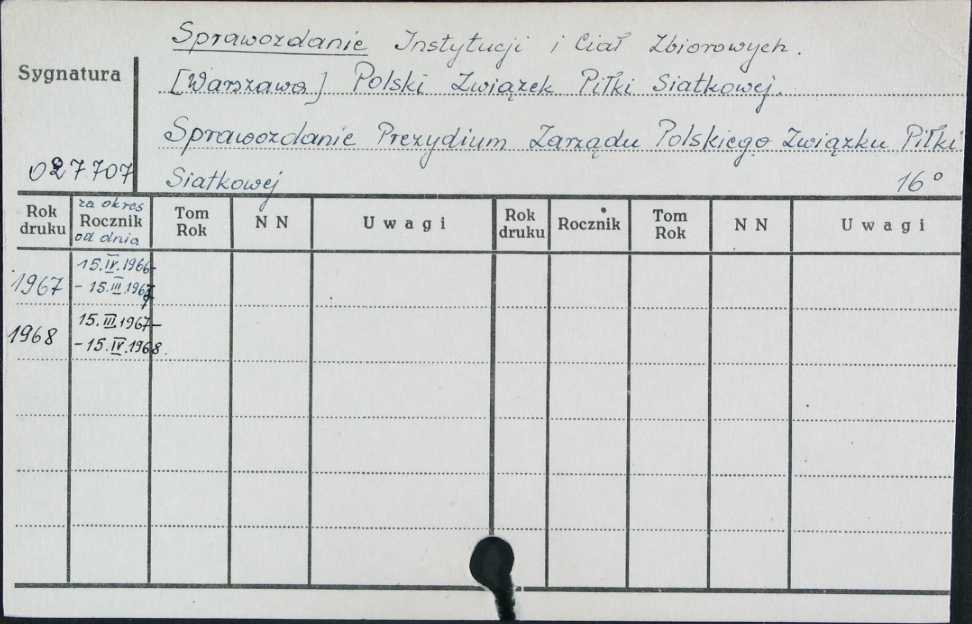 Sprawozdanie Instytucji i Ciał Zbiorowych.
Sygnatura
[Warszawa] Polski Związek Piłki Siatkowej.
Sprawozdanie Prezydium Zarządu Polskiego Związku Piłki
027707 Siatkowej 16°
Rok druku za okres Rocznik od dnia Tom Rok N N Uwagi Rok druku Rocznik Tom Rok N N Uwagi
1967 15.IV.1966-
- 15.III.1967
1968 15.III.1967-
- 15.IV.1968.